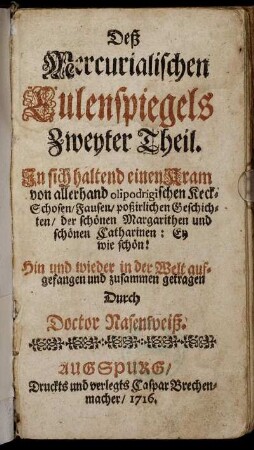 Deß
Mercurialischen
Eulenspiegels
Zweyter Theil.
In sich haltend einen Kram
von allerhand olipodrigischen Keck-
Schosen/ Fausen/ poßirlichen Geschich-
ten/ der schönen Margarithen und
schönen Catharinen: Ey
wie schön!
Hin und wieder in der Welt auf-
gefangen und zusammen getragen
Durch
Doctor Nasenweiß.
AUGSPURG/
Druckts und verlegts Caspar Brechen-
macher/ 1716.